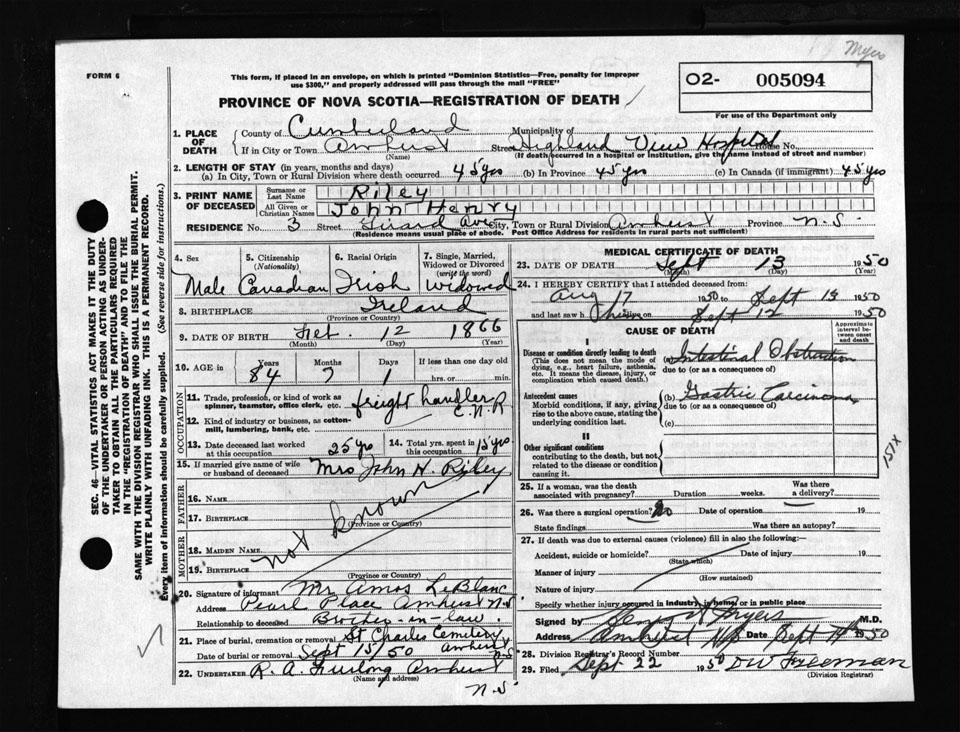 Myers
FORM 6
This form, if placed in an envelope, on which is printed "Dominion Statistics—Free, penalty for improper
use $300," and properly addressed will pass through the mail "FREE"
O2- 005094
PROVINCE OF NOVA SCOTIA—REGISTRATION OF DEATH
For use of the Department only
1. PLACE OF DEATH
County of Cumberland Municipality of
If in City or Town Amherst Street Highland View Hospital House No.
(Name) (If death occurred in a hospital or institution, give the name instead of street and number)
2. LENGTH OF STAY (in years, months and days)
(a) In City, Town or Rural Division where death occurred 45 yrs (b) In Province 45 yrs (c) In Canada (if immigrant) 45 yrs
3. PRINT NAME OF DECEASED
Surname or Last Name Riley
All Given or Christian Names John Henry
RESIDENCE No. 3 Street Girard Ave City, Town or Rural Division Amherst Province N.S.
(Residence means usual place of abode. Post Office Address for residents in rural parts not sufficient)
SEC. 46—VITAL STATISTICS ACT MAKES IT THE DUTY
OF THE UNDERTAKER OR PERSON ACTING AS UNDER-
TAKER TO OBTAIN ALL THE PARTICULARS REQUIRED
IN THE "REGISTRATION OF DEATH" AND TO FILE THE
SAME WITH THE DIVISION REGISTRAR WHO SHALL ISSUE THE BURIAL PERMIT.
WRITE PLAINLY WITH UNFADING INK. THIS IS A PERMANENT RECORD.
Every item of information should be carefully supplied. (See reverse side for instructions.)
4. Sex
Male
5. Citizenship
(Nationality)
Canadian
6. Racial Origin
Irish
7. Single, Married, Widowed or Divorced
(write the word)
Widowed
8. BIRTHPLACE Ireland
(Province or Country)
9. DATE OF BIRTH Feb. 12 1866
(Month) (Day) (Year)
10. AGE
Years Months Days If less than one day old
84 7 1 hrs. or min.
OCCUPATION
11. Trade, profession, or kind of work as
spinner, teamster, office clerk, etc. freight handler
12. Kind of industry or business, as cotton-
mill, lumbering, bank, etc. C.N.R
13. Date deceased last worked
at this occupation 25 yrs
14. Total yrs. spent in
this occupation 15 yrs
15. If married give name of wife
or husband of deceased Mrs John H. Riley
FATHER
16. NAME
17. BIRTHPLACE
(Province or Country)
not known
MOTHER
18. MAIDEN NAME
19. BIRTHPLACE
(Province or Country)
20. Signature of informant Mr Amos LeBlanc
Address Pearl Place Amherst N.S
Relationship to deceased Brother-in-law.
21. Place of burial, cremation or removal St Charles Cemetery
Amherst N.S
Date of burial or removal Sept 15/50
22. UNDERTAKER R. A. Furlong Amherst
(Name and address)
N.S
MEDICAL CERTIFICATE OF DEATH
23. DATE OF DEATH Sept 13 1950
(Month) (Day) (Year)
24. I HEREBY CERTIFY that I attended deceased from:
Aug 17 1950 to Sept 13 1950
and last saw h alive on Sept 12 1950
CAUSE OF DEATH
Approximate
interval be-
tween onset
and death
I
Disease or condition directly leading to death
(This does not mean the mode of
dying, e.g., heart failure, asthenia,
etc. It means the disease, injury, or
complication which caused death.
(a) Intestinal Obstruction
due to (or as a consequence of)
Antecedent causes
Morbid conditions, if any, giving
rise to the above cause, stating the
underlying condition last.
(b) Gastric Carcinoma
due to (or as a consequence of)
(c)
II
Other significant conditions
contributing to the death, but not
related to the disease or condition
causing it.
151X
25. If a woman, was the death
associated with pregnancy? Duration weeks. Was there
a delivery?
26. Was there a surgical operation? No Date of operation 19
State findings Was there an autopsy?
27. If death was due to external causes (violence) fill in also the following:
Accident, suicide or homicide? Date of injury 19
(State which)
Manner of injury
(How sustained)
Nature of injury
Specify whether injury occurred in industry, in home, or in public place
Signed by Myers M.D.
Address Amherst N.S. Date Sept 1950
28. Division Registrar's Record Number
29. Filed Sept 22 1950 DW Freeman
(Division Registrar)